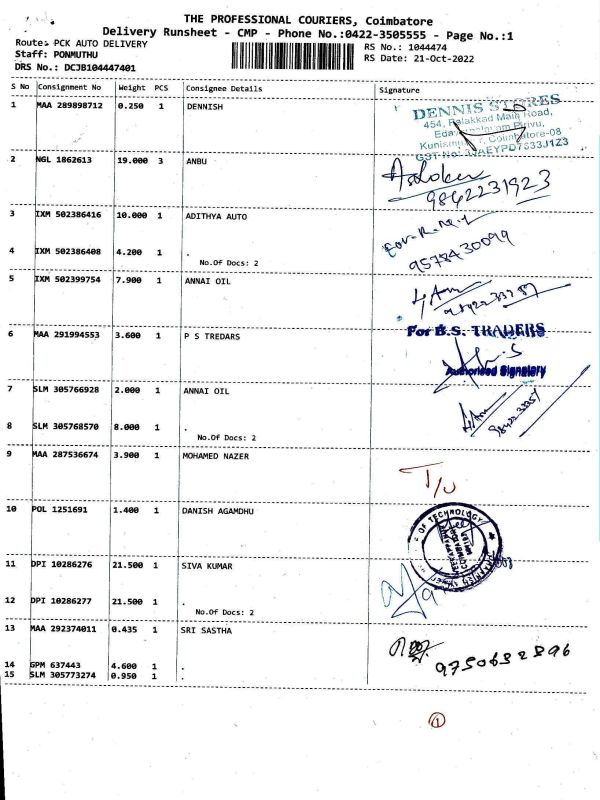 THE PROFESSIONAL COURIERS, Coimbatore
Delivery Runsheet - CMP - Phone No.:0422-3505555 - Page No.:1
Route: PCK AUTO DELIVERY
RS No.: 1044474
Staff: PONMUTHU
RS Date: 21-Oct-2022
DRS No.: DCJB104447401
S No Consignment No Weight PCS Consignee Details Signature
1 MAA 289898712 0.250 1 DENNISH
DENNIS STORES
454, Palakkad Main Road,
2 NGL 1862613 19.000 3 ANBU
9842231923
3 IXM 502386416 10.000 1 ADITHYA AUTO
4 IXM 502386408 4.200 1 .
No.Of Docs: 2
9578430099
5 IXM 502399754 7.900 1 ANNAI OIL
For B.S. TRADERS
6 MAA 291994553 3.600 1 P S TREDARS
Authorised Signatory
7 SLM 305766928 2.000 1 ANNAI OIL
8 SLM 305768570 8.000 1 .
No.Of Docs: 2
9 MAA 287536674 3.900 1 MOHAMED NAZER
T/U
10 POL 1251691 1.400 1 DANISH AGAMDHU
OF TECHNOLOGY
11 DPI 10286276 21.500 1 SIVA KUMAR
12 DPI 10286277 21.500 1 .
No.Of Docs: 2
13 MAA 292374011 0.435 1 SRI SASTHA
9750632896
14 GPM 637443 4.600 1 .
15 SLM 305773274 0.950 1 .
1